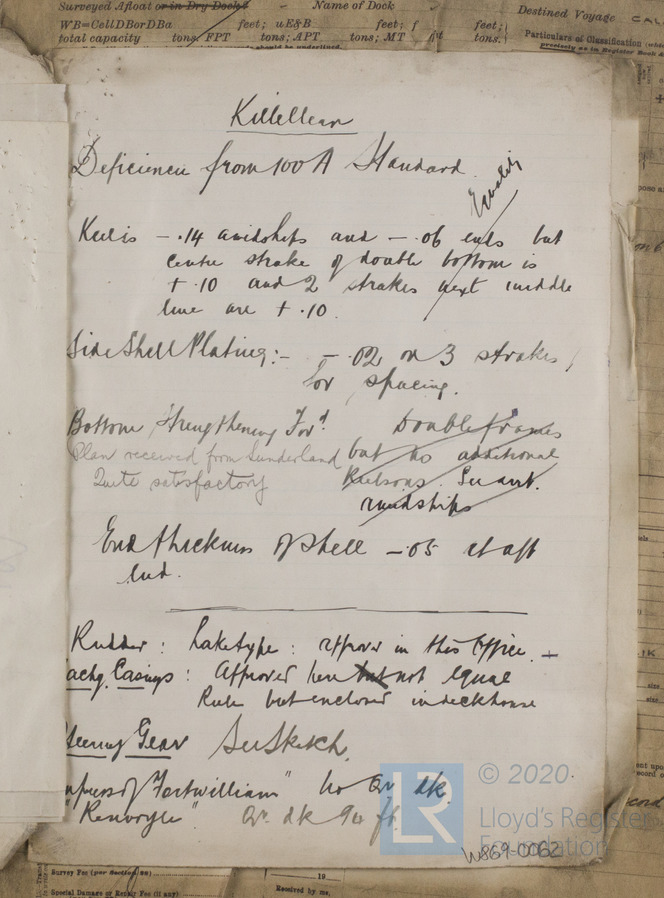 Surveyed Afloat or in Dry Dock? Name of Dock
Destined Voyage CAL
WB=CellDBorDBa feet; uE&B feet; f feet;
total capacity tons. FPT tons; APT tons; MT tons.
Particulars of Classification (whi
precisely as in Register Book
Killellean
Deficiencies from 100 A Standard.
Equality
Keel is - .14 amidships and - .06 ends but
centre strake of double bottom is
+ .10 and 2 strakes next middle
line are + .10.
Side Shell Plating:- - .02 on 3 strakes
For spacing.
Bottom Strengthening Ford
Double frames
Plan received from Sunderland
but no additional
Quite satisfactory
Keelsons.
midships
End thickness of shell - .05 at aft
end.
Rudder: Lake type: approved in this Office. +
achy. Casings: Approved here but not equal
Rule but enclosed in deckhouse
Steering Gear See Sketch.
"Fortwilliam" no Qr dk.
"Renvoyle" Qr dk 94 ft.
LR
© 2020
Lloyd's Register
Foundation
W869-0062
Survey Fee (per Section 29)
Special Damage or Repair Fee (if any)
19
Received by me,